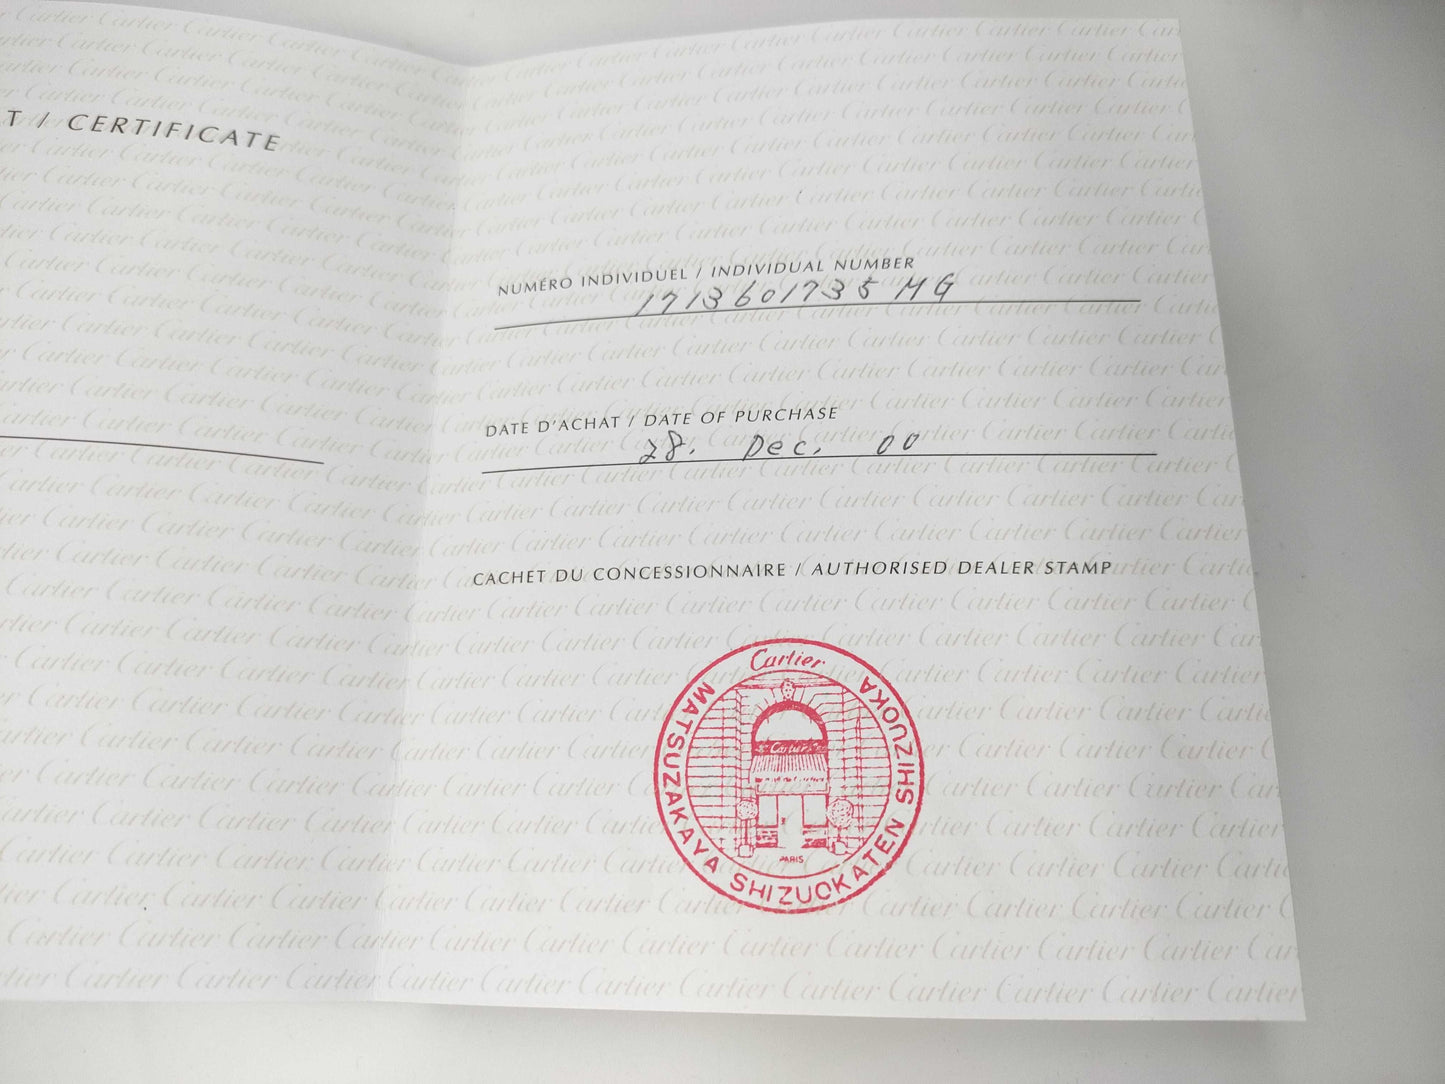 T / CERTIFICATE
NUMÉRO INDIVIDUEL / INDIVIDUAL NUMBER
1713601735 MG
DATE D'ACHAT / DATE OF PURCHASE
28. Dec. 00
CACHET DU CONCESSIONNAIRE / AUTHORISED DEALER STAMP
Cartier
MATSUZAKAYA SHIZUOKATEN SHIZUOKA
Cartier
PARIS